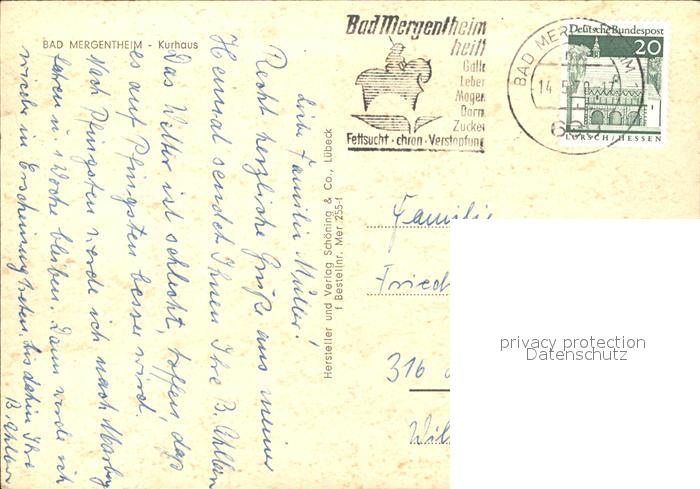 BAD MERGENTHEIM - Kurhaus
Liebe Familie Müller!
Recht herzliche Grüße aus meiner
Heimat sendet Ihnen Ihre B. Uhlen
Das Wetter ist schlecht, hoffen, daß
es auf Pfingsten besser wird.
Nach Pfingsten werde ich nach Marburg
fahren u. 1 Woche bleiben. Dann werde ich
wieder in Erscheinung treten. Bis dahin Ihre
B. Uhlen
Hersteller und Verlag Schöning & Co., Lübeck
Bestellnr. Mer 255-1
Bad Mergentheim
heilt
Galle
Leber
Magen
Darm
Zucker
Fettsucht · chron · Verstopfung
BAD MERGENTHEIM
14.5.70
Deutsche Bundespost
20
LORSCH/HESSEN
Familie
Fried
316
privacy protection
Datenschutz